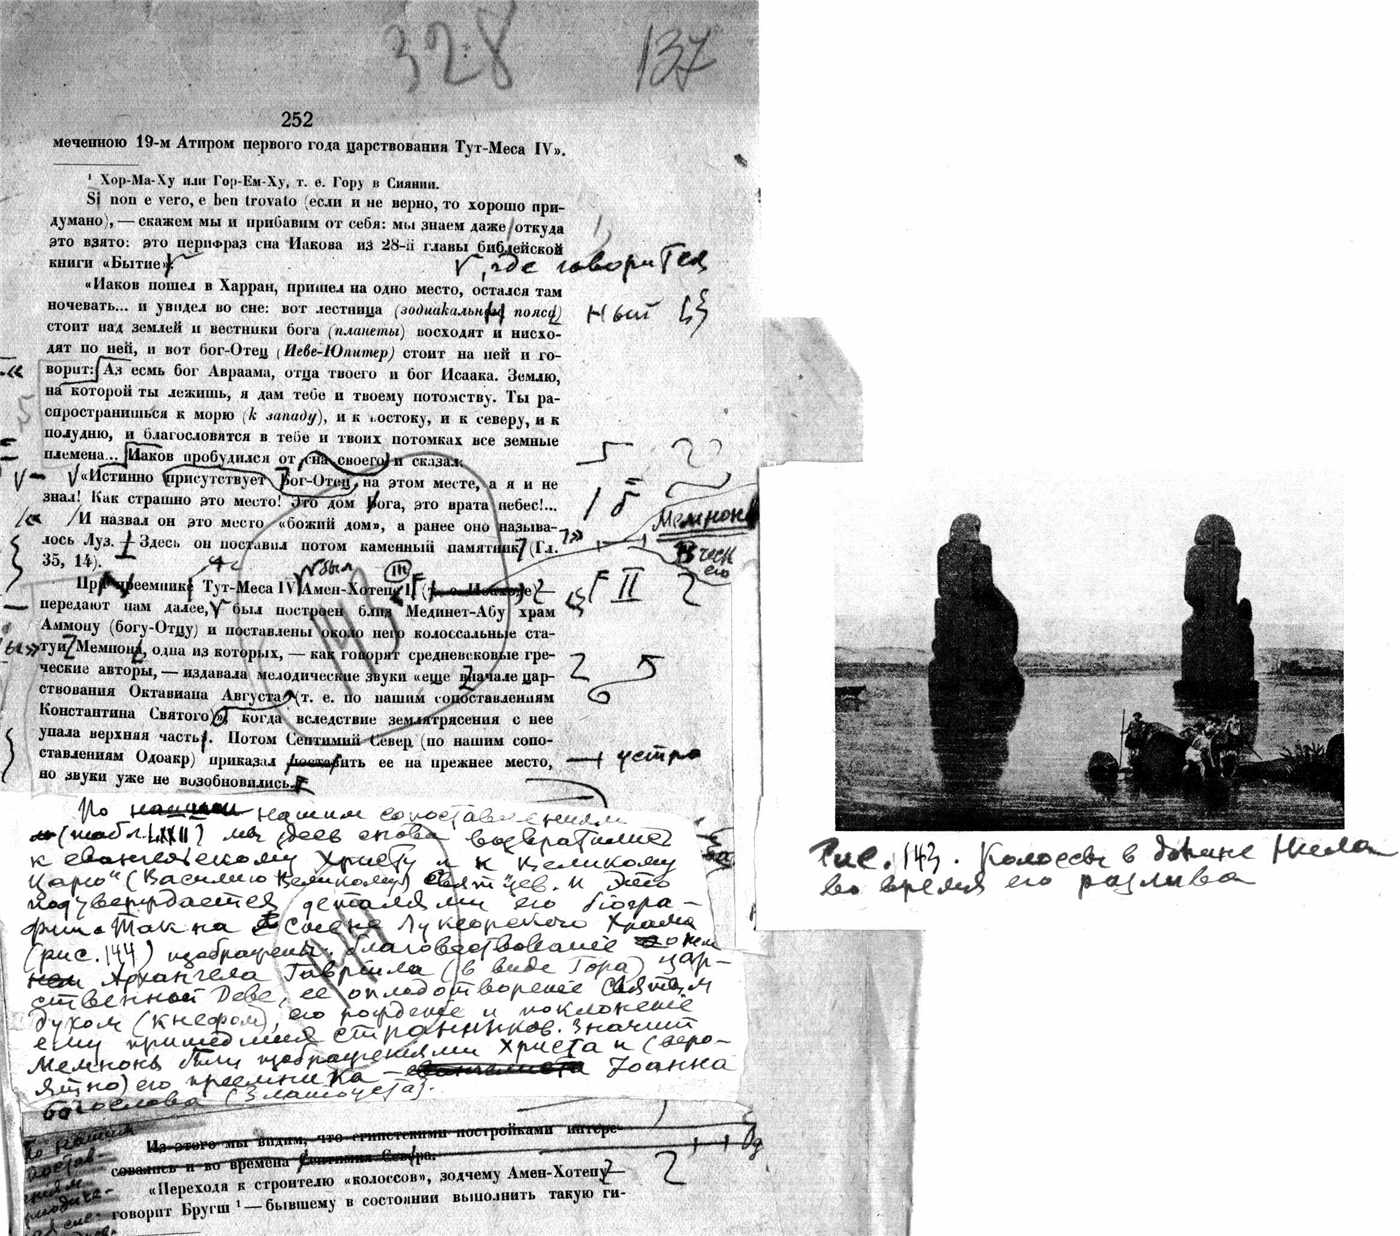 328
137
252
меченною 19-м Атиром первого года царствования Тут-Меса IV».
¹ Хор-Ма-Ху или Гор-Ем-Ху, т. е. Гору в Сиянии.
Si non e vero, e ben trovato (если и не верно, то хорошо при-
думано), — скажем мы и прибавим от себя: мы знаем даже откуда
это взято: это перифраз сна Иакова из 28-й главы библейской
книги «Бытие»
, где говорится
«Иаков пошел в Харран, пришел на одно место, остался там
ночевать... и увидел во сне: вот лестница (зодиакальный пояс)
ный
стоит над землей и вестники бога (планеты) восходят и нисхо-
дят по ней, и вот бог-Отец (Иеве-Юпитер) стоит на ней и го-
ворит: Аз есмь бог Авраама, отца твоего и бог Исаака. Землю,
на которой ты лежишь, я дам тебе и твоему потомству. Ты ра-
спространишься к морю (к западу), и к востоку, и к северу, и к
полудню, и благословятся в тебе и твоих потомках все земные
племена... Иаков пробудился от сна своего и сказал:
«Истинно присутствует Бог-Отец на этом месте, а я и не
знал! Как страшно это место! Это дом Бога, это врата небес!...
б
И назвал он это место «божий дом», а ранее оно называ-
лось Луз. — Здесь он поставил потом каменный памятник (Гл.
35, 14).
Мемнон
При преемнике Тут-Меса IV был Амен-Хотеп III
II
передают нам далее, был построен близ Мединет-Абу храм
Аммону (богу-Отцу) и поставлены около него колоссальные ста-
туи Мемнона, одна из которых, — как говорят средневековые гре-
ческие авторы, — издавала мелодические звуки «еще вначале цар-
ствования Октавиана Августа (т. е. по нашим сопоставлениям
Константина Святого)», когда вследствие землятрясения с нее
упала верхняя часть. Потом Септимий Север (по нашим сопо-
ставлениям Одоакр) приказал поставить ее на прежнее место,
устро
но звуки уже не возобновились.
143
По нашим сопоставлениям
(табл. LXXII) мы здесь снова возвратились
к евангельскому Христу и к „Великому
Царю" (Василию Великому) святцев. И это
подтверждается деталями его биогра-
фии. Так на стене Луксорского Храма
(рис. 144) изображены: благовествование
Архангела Гавриила (в виде Гора) цар-
ственной Деве, ее оплодотворение Святым
духом (Кнефом), его рождение и поклонение
ему пришедших странников. Значит
Мемноны были изображениями Христа и (веро-
ятно) его преемника — Иоанна
богослова (Златоуста).
144
Из этого мы видим, что египетскими постройками интере-
совались и во времена Септимия Севера.
«Переходя к строителю «колоссов», зодчему Амен-Хотепу —
говорит Бругш ¹ — бывшему в состоянии выполнить такую ги-
Рис. 143. Колоссы в долине Нила
во время его разлива